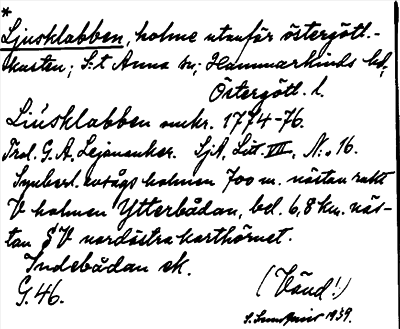 *
Ljusklabben, holme utanför östergötl.-
kusten; S:t Anna sn, Hammarkinds hd,
Östergötl. l.
Liúsklabben omkr. 1774-76.
Trol. G. A. Lejonanker. SjA, Litt. VII, N:o 16.
Synberl. avsågs holmen 700 m. nästan rakt
V holmen Ytterbådan, bel. 6,8 km. näs-
tan SV nordöstra karthörnet.
Indebådan sk.
G. 46. (Vänd!)
S. 1939.